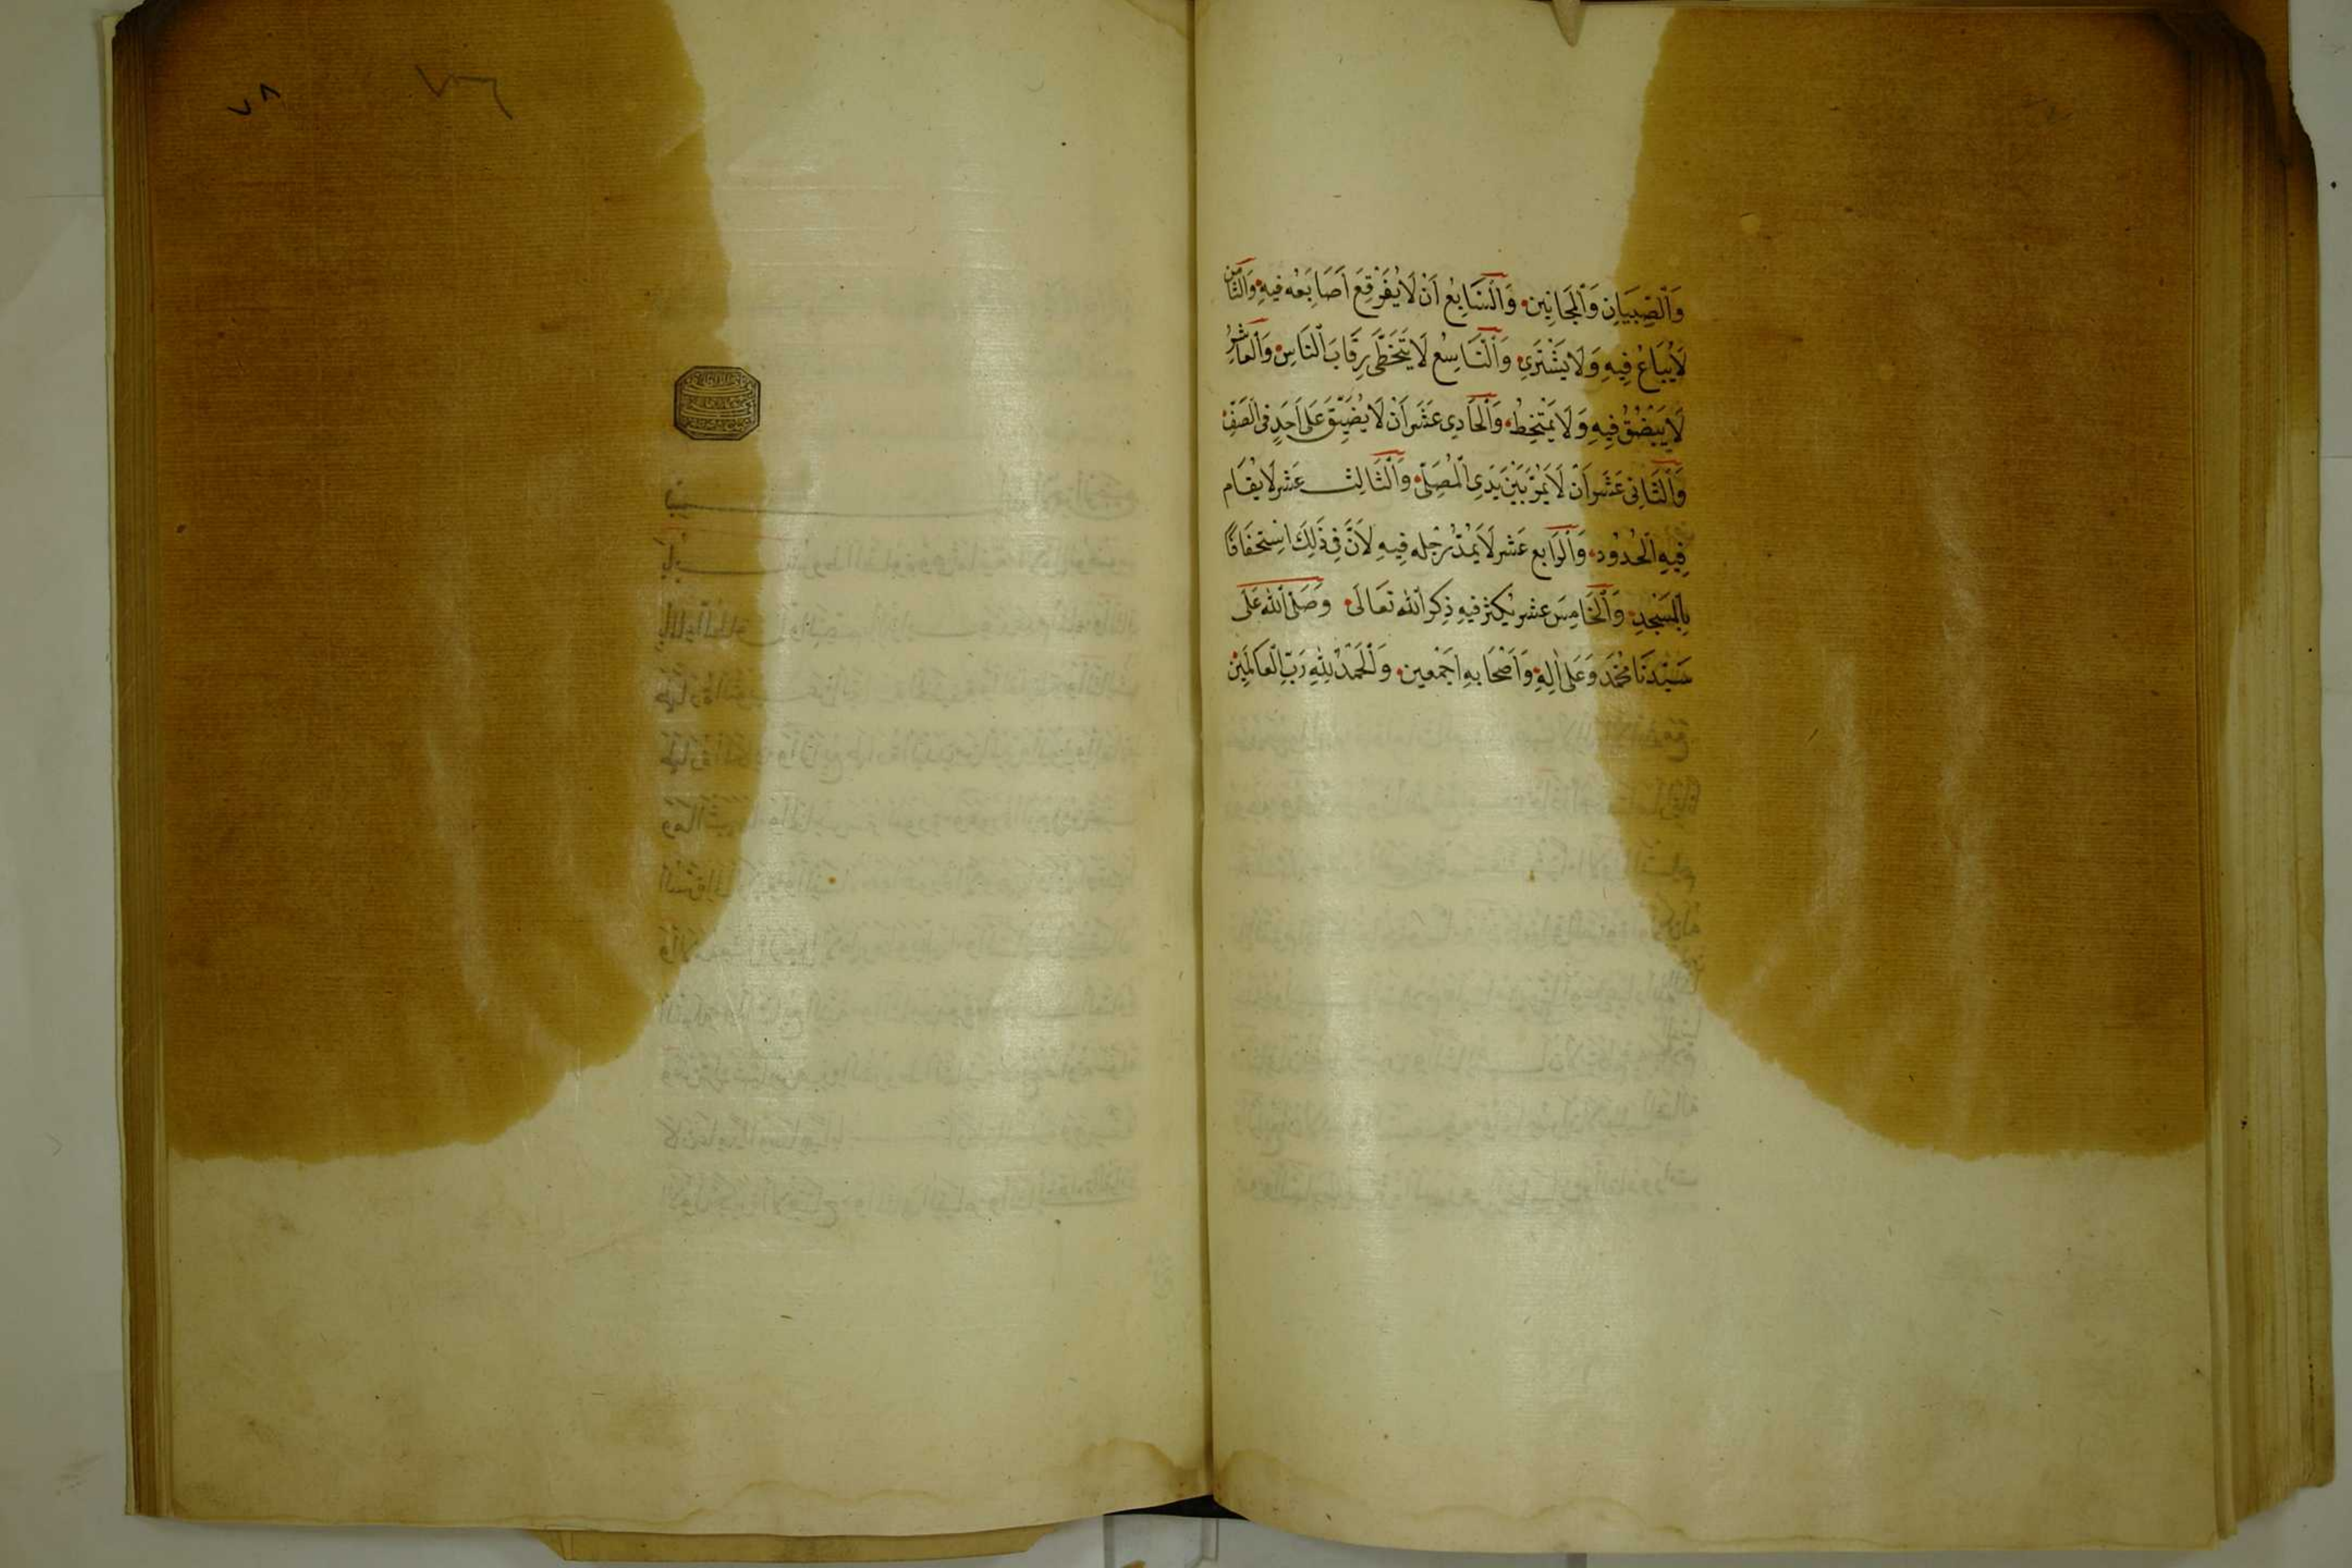 وَالْصِّبْيَانِ وَالْمَجَانِينِ وَالْسَّابِعُ اَنْ لَا يُفَرْقِعَ اَصَابِعَهُ فِيهِ وَالثَّامِن
لَا يُبَاعُ فِيهِ وَلَا يَشْتَرِي وَالْتَّاسِعُ لَا يَتَخَطَّى رِقَابَ النَّاسِ وَالْعَاشِرُ
لَا يَبْصُقُ فِيهِ وَلَا يَمْتَخِطُ وَالْحَادِي عَشَرَ اَنْ لَا يُضَيِّقَ عَلَى اَحَدٍ فِى الصَّفِّ
وَالْثَّانِى عَشَرَ اَنْ لَا يَمُرَّ بَيْنَ يَدَىِ الْمُصَلِّى وَالْثَّالِث عَشَر لَا يُقَام
فِيهِ الْحُدُود وَالْرَابِع عَشَر لَا يَمُدُّ رِجْلَه فِيهِ لِاَنَّ فِى ذٰلِكَ اسْتِخْفَافًا
بِالْمَسْجِدِ وَالْخَامِسَ عَشَر يُكْثِرُ فِيهِ ذِكْرَ اللّٰه تَعَالَى وَصَلَّى اللّٰه عَلَى
سَيِّدِنَا مُحَمَّد وَعَلَى اٰلِهِ وَاَصْحَابِهِ اَجْمَعِين وَالْحَمْدُ لِلّٰهِ رَبِّ الْعَالَمِينَ
٧٨